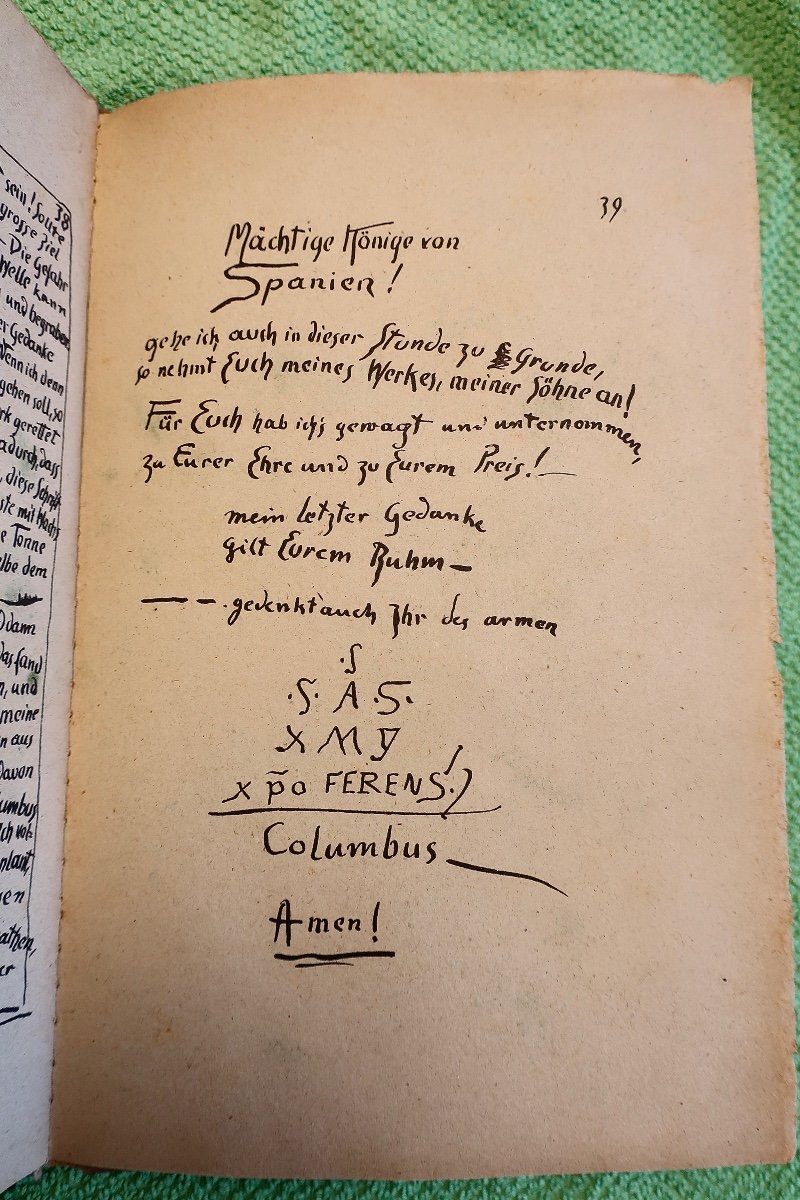 sein! Sollte
38
grosse Ziel
Die Gefahr
Welle kann
und begraben
er Gedanke
Wenn ich denn
gehen soll, so
rk gerettet
adurch, dass
, diese Schrift
ste mit Wachs
e Tonne
elbe dem
dann
das fand
n, und
meine
n aus
davon
lumbus
Ich
nlant
en
athen,
er
39
Mächtige Könige von
Spanien!
gehe ich auch in dieser Stunde zu Grunde,
so nehmt Euch meines Werkes, meiner Söhne an!
Für Euch hab ich's gewagt und unternommen,
zu Eurer Ehre und zu Eurem Preis! —
mein letzter Gedanke
gilt Eurem Ruhm —
— – . gedenkt auch Ihr des armen
.S
.S. A .S.
X M Y
X p̄o FERENS!.)
Columbus
Amen!